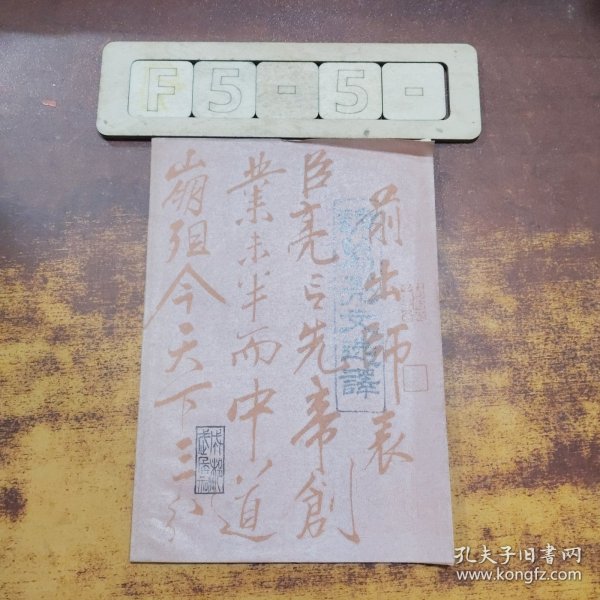 F5-5-
前出師表
臣亮言先帝創
業未半而中道
崩殂今天下三分
譯
成都
武侯祠
孔夫子旧书网
www.kongfz.com